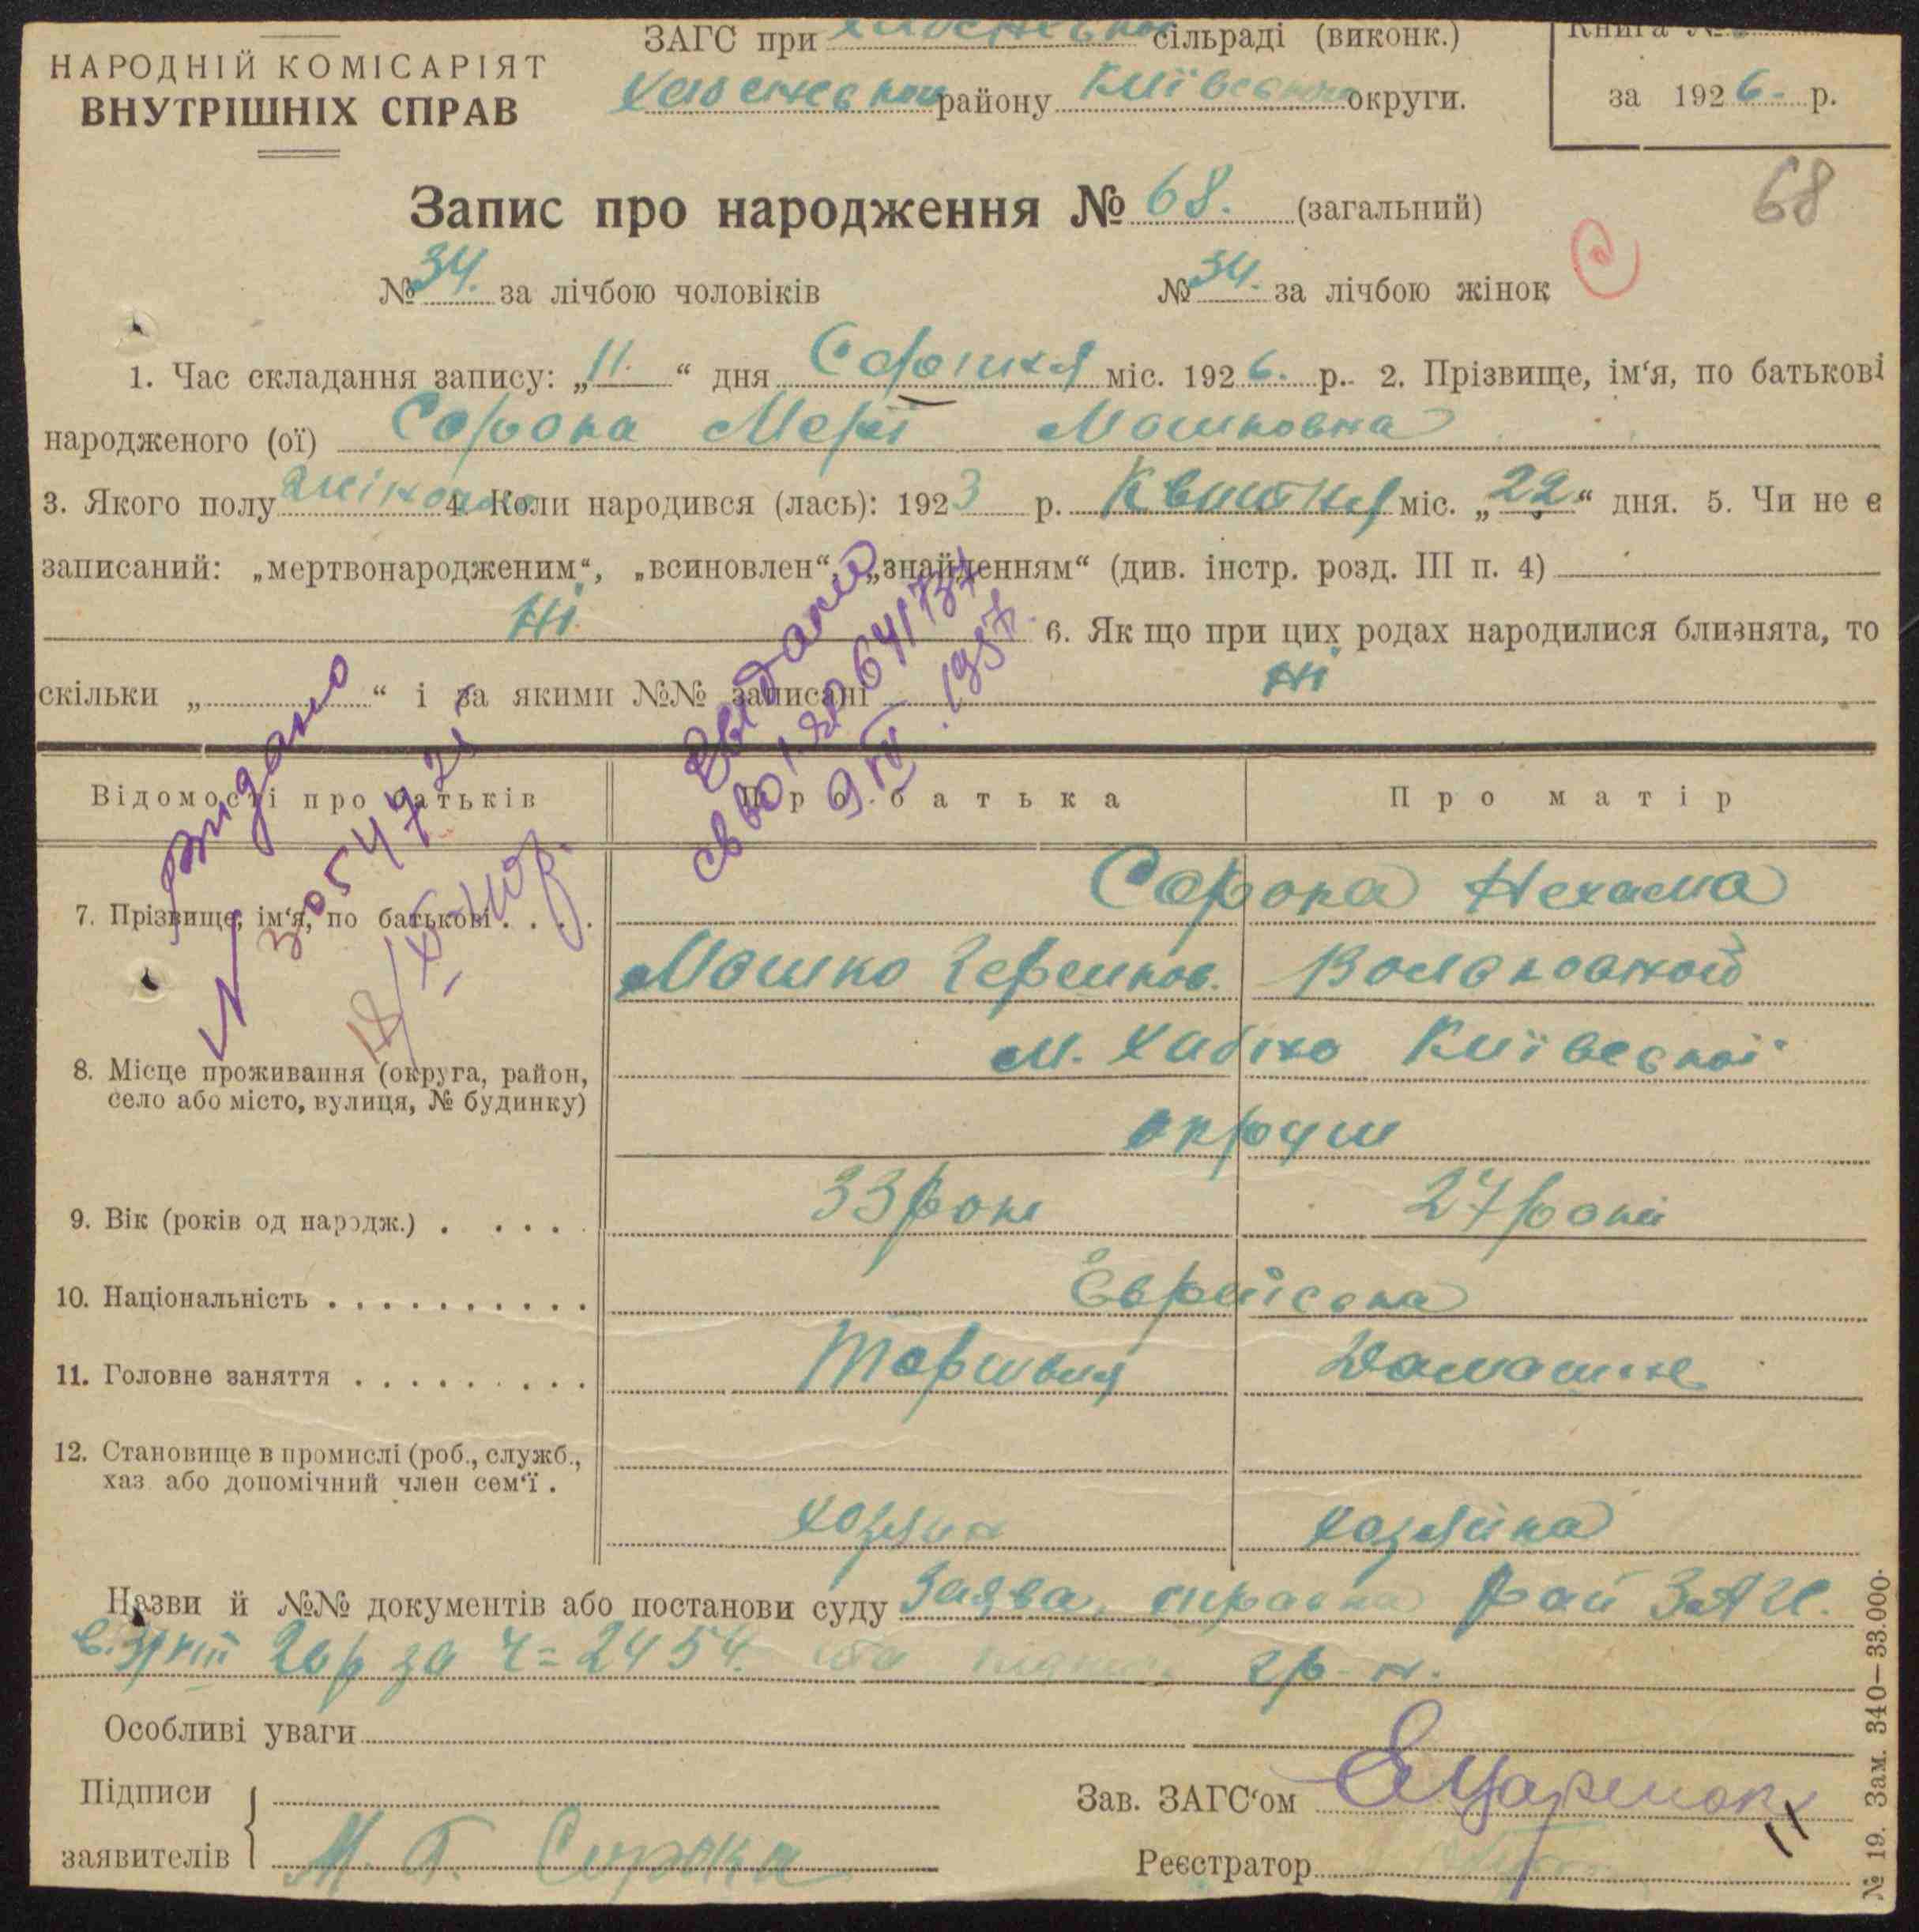 НАРОДНІЙ КОМІСАРІЯТ
ВНУТРІШНІХ СПРАВ
ЗАГС при сільраді (виконк.)
району Київської округи.
Книга №
за 1926. р.
68
Запис про народження № 68. (загальний)
№ 34. за лічбою чоловіків № 34. за лічбою жінок
1. Час складання запису: „11.“ дня Серпня міс. 1926. р. 2. Прізвище, ім‘я, по батькові
народженого (ої) Сорока Мері Мошковна
3. Якого полу жіночо 4. Коли народився (лась): 1923 р. Квітня міс. „22“ дня. 5. Чи не є
записаний: „мертвонародженим“, „всиновлен“, „знайденням“ (див. інстр. розд. III п. 4)
Ні. 6. Як що при цих родах народилися близнята, то
скільки „ “ і за якими №№ записані Ні
Відомості про батьків Про батька Про матір
видано
7. Прізвище, ім‘я, по батькові . . . .
Сорока Нехама
Мошко Гершков.
8. Місце проживання (округа, район,
село або місто, вулиця, № будинку)
м. Хабно Київської
округи
9. Вік (років од народж.) . . . . . 33 роки 27 років
10. Національність . . . . . . . . . . Єврейська
11. Головне заняття . . . . . . . . . Торгівля Домашнє
12. Становище в промислі (роб., служб.,
хаз. або допомічний член сем‘ї .
хозяин хозяйка
Назви й №№ документів або постанови суду Заява, справка Рай ЗАГС.
26 р за Ч= 2454.
Особливі уваги
Підписи
заявителів М. Г. Сорока
Зав. ЗАГС‘ом
Реєстратор
№ 19. Зам. 340—33.000.